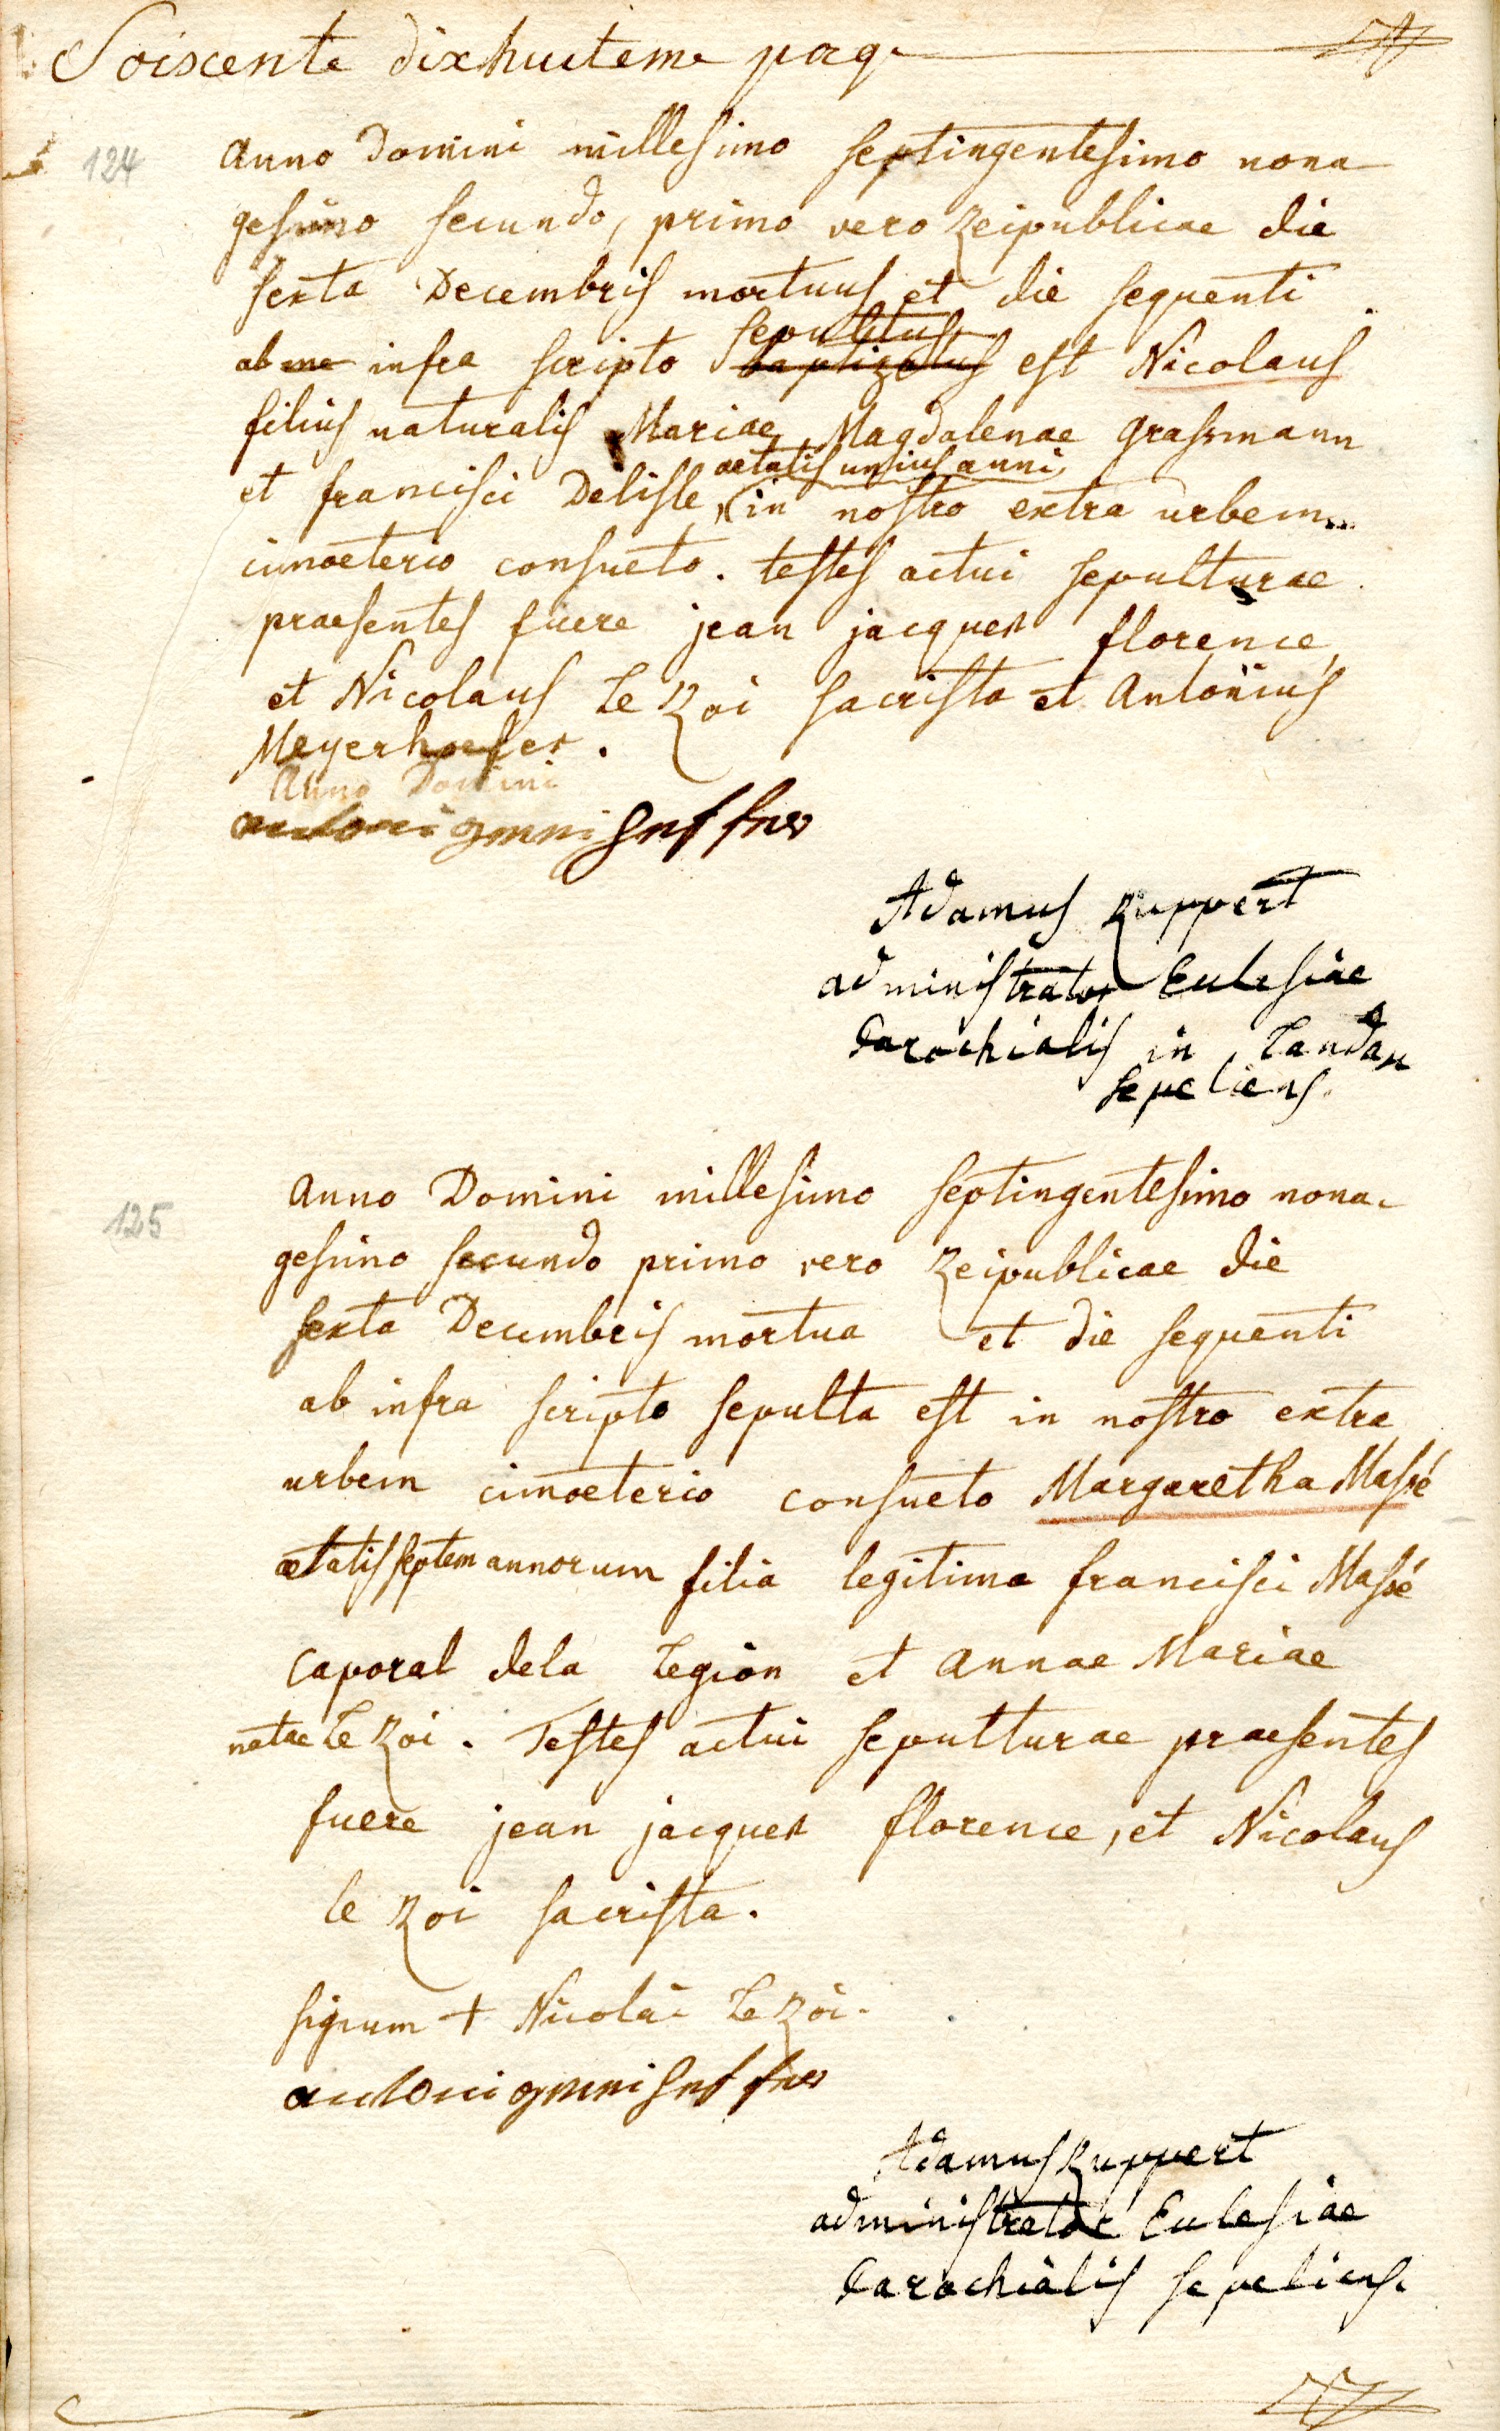 Soixcente dixhuiteme page
124
Anno Domini millesimo septingentesimo nona
gesimo secundo, primo vero Reipublicae die
sexta Decembris mortuus et die sequenti
sepultus
ab me infra scripto baptizatus est Nicolaus
filius naturalis Mariae Magdalenae Grassmann
aetatis unius anni
et francisci Delisle, in nostro extra urbem
cimoeterio consueto. testes actui sepulturae
praesentes fuere jean jacques florence,
et Nicolaus Le Roi sacrista et Antonius
Meyerhoefer.
Anno Domini
Adamus Ruppert
administrator Ecclesiae
Parochialis in Landau
sepeliens.
125
Anno Domini millesimo septingentesimo nona-
gesimo secundo primo vero Reipublicae die
sexta Decembris mortua et die sequenti
ab infra scripto sepulta est in nostro extra
urbem cimoeterio consueto Margaretha Massé
aetatis septem annorum filia legitima francisci Massé
Caporal dela Legion et Annae Mariae
natae Le Roi. Testes actui sepulturae praesentes
fuere jean jacques florence, et Nicolaus
le Roi sacrista.
signum + Nicolai Le Roi.
Adamus Ruppert
administrator Ecclesiae
Parochialis sepeliens.